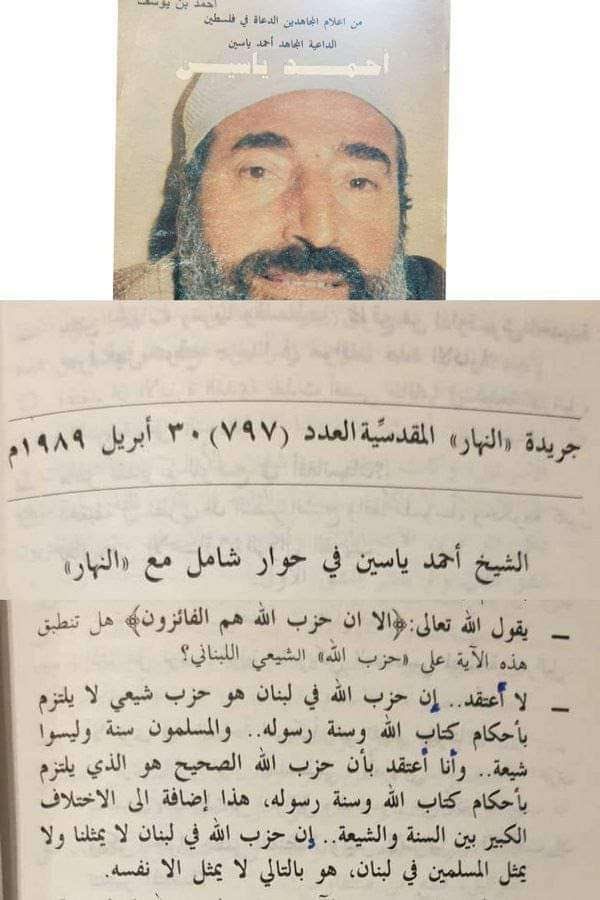 أحمد بن يوسف
من اعلام المجاهدين الدعاة في فلسطين
الداعية المجاهد أحمد ياسين
أحمد ياسين
جريدة «النهار» المقدسيّة العدد (٧٩٧) ٣٠ أبريل ١٩٨٩م
الشيخ أحمد ياسين في حوار شامل مع «النهار»
– يقول الله تعالى: ﴿الا ان حزب الله هم الفائزون﴾ هل تنطبق
هذه الآية على «حزب الله» الشيعي اللبناني؟
– لا أعتقد.. إن حزب الله في لبنان هو حزب شيعي لا يلتزم
بأحكام كتاب الله وسنة رسوله.. والمسلمون سنة وليسوا
شيعة.. وأنا أعتقد بأن حزب الله الصحيح هو الذي يلتزم
بأحكام كتاب الله وسنة رسوله، هذا إضافة الى الاختلاف
الكبير بين السنة والشيعة.. إن حزب الله في لبنان لا يمثلنا ولا
يمثل المسلمين في لبنان، هو بالتالي لا يمثل الا نفسه.